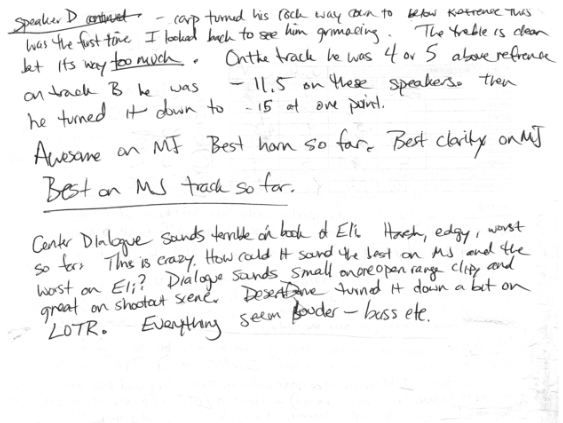 Speaker D - carp turned his rock way down to below reference this
was the first time I looked back to see him grimacing. The treble is clean
but its way too much. On the track he was 4 or 5 above refrence
on track B he was -11.5 on these speakers. then
he turned it down to -15 at one point.
Awesome on MJ Best horn so far. Best clarity on MJ
Best on MJ track so far.
Center Dialogue sounds terrible on book of Eli. Harsh, edgy, worst
so far. This is crazy. How could it sound the best on MJ and the
worst on Eli? Dialogue sounds small on open range clip and
great on shootout scene. turned it down a bit on
LOTR. Everything seem louder - bass etc.